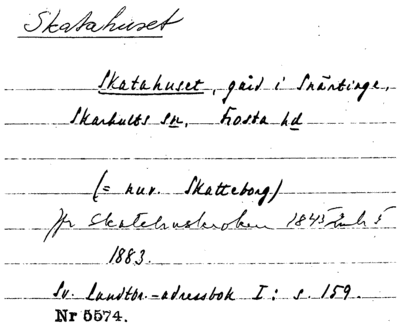 Skatahuset
Skatahuset, gård i Snärtinge,
Skarhults sn, Frosta hd
(= nuv. Skatteborg)
Jfr Skatehuskroken 1843
1883.
Sv. Landtbr.-adressbok I: s. 159.
Nr 5574.